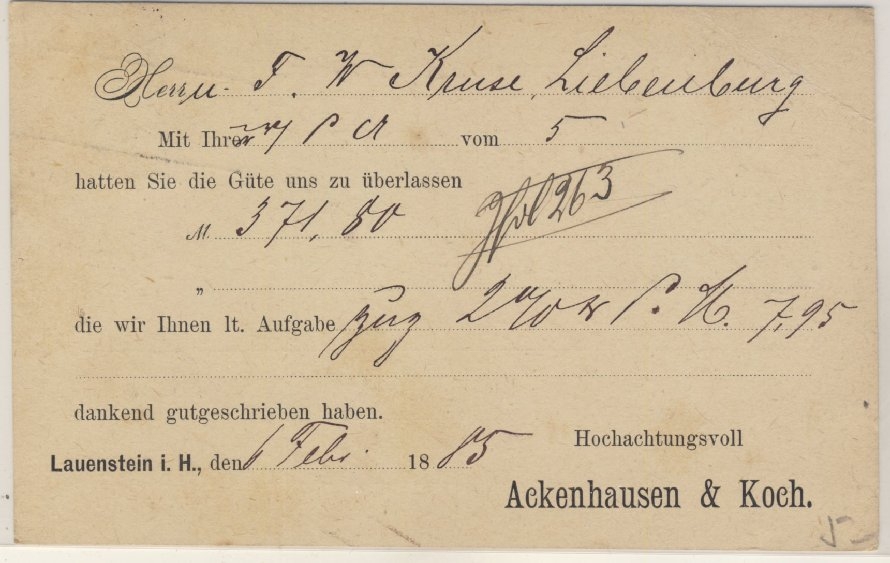 Herrn F. W Kruse, Liebenburg
Mit Ihrer vom 5
hatten Sie die Güte uns zu überlassen
M. 371,80
Fol 263
"
die wir Ihnen lt. Aufgabe 2 M. 7,95
dankend gutgeschrieben haben.
Hochachtungsvoll
Lauenstein i. H., den 6 Febr. 1885
Ackenhausen & Koch.
5-